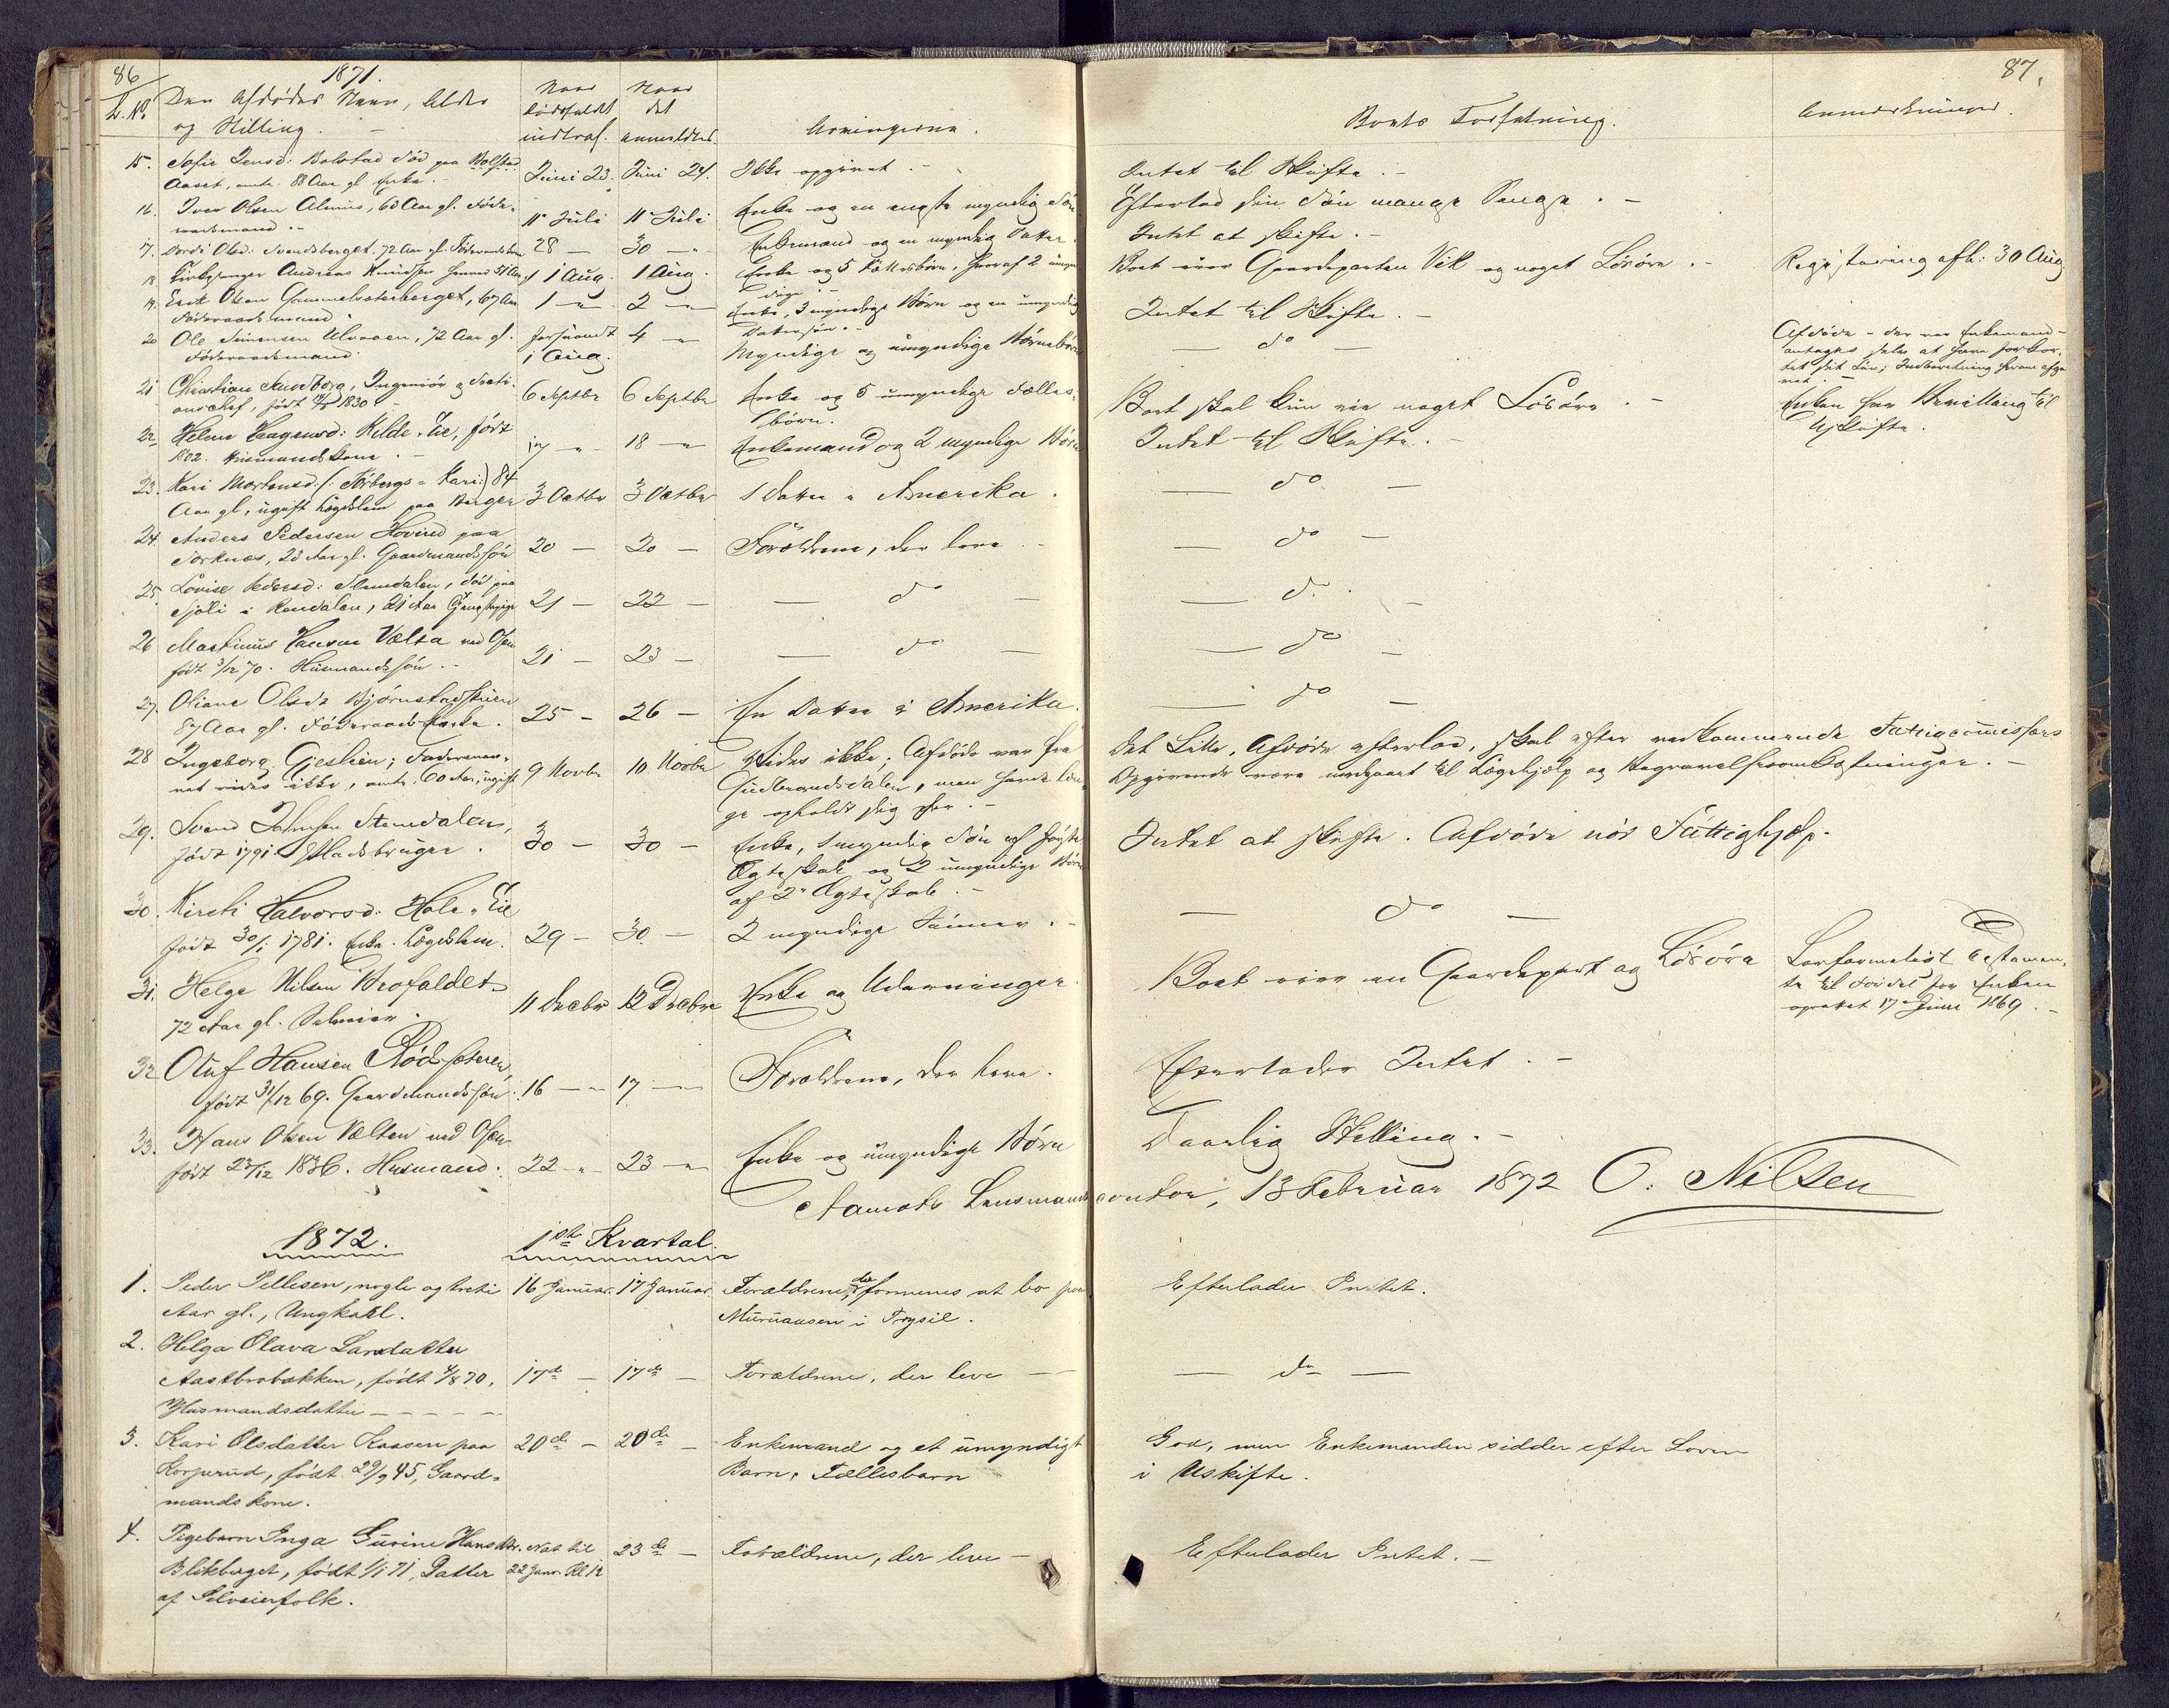 86
1871.
L. No.
Den Afdødes Navn, Alder
og Stilling.
Naar
Dødsfaldet
indtraf.
Naar
det
anmeldtes.
Arvingerne.
Boets Forfatning.
Anmærkninger.
87.
15. Sofie Jensd: Bolstad død paa Bolstad
Aaset, omtr. 88 Aar gl. Enke. Juni 23. Juni 24. Ikke opgivet. - Intet til Skifte. -
16. Iver Olsen Alme, 63 Aar gl. Føde-
raadsmand. - 11 Juli 11 Juli Enke og en myndig Søn Efterlod sin Søn mange Penge. -
17. Olsd: Svendsberget, 72 Aar gl. 28 — 30 — Enkemand og en myndig Datter. Intet at skifte. -
18. Kirkesanger Andreas Knudsen 51 Aar 1 Aug. 1 Aug. Enke og 5 Fællesbørn, hvoraf 2 umyn-
dige. Boet eier Gaardeparten Vik og noget Løsøre. - Registrering afh: 30 Aug
19. Erik Olsen Gammelsæterberget, 67 Aar
Føderaadsmand. 1 — 2 — Enke, 3 myndige Børn og en umyndig
Dattersøn. - Intet til Skifte. -
20 Ole Simensen Ulvaaen, 72 Aar gl.
Føderaadsmand. forsvandt
i Aug. 4 — Myndige og umyndige Børnebørn — do — Afdøde - der var Enkemand -
antages selv at have forkor-
tet sit Liv; Indberetning herom afgi-
vet. -
21 Christian Sundborg, Ingeniør og Secti-
onschef, født 1830. 6 Septbr 6 Septbr Enke og 5 umyndige Fælles-
børn. Boet skal kun eie noget Løsøre. - Enken har Bevilling til
Uskifte.
22 Helene Haagensd: Kilde-Eie, født
1802. Husmandskone. 17 — 18 — Enkemand og 2 myndige Børn Intet til Skifte. -
23. Kari Mortensd: (: Torbergs-Kari:) 84
Aar gl, ugift Lægdslem paa Berger 3 Octbr 3 Octbr 1 Datter i Amerika. — do —
24. Anders Pedersen Hovind paa
Sorknæs, 23 Aar gl. Gaardmandssøn 20 — 20 — Forældrene, der leve - — do —
25. Lovise Pedersd: Stemdalen, død paa
Sjøli i Rendalen, 21 Aar 21 — 22 — — do — — do. —
26 Martinus Hansen Vælta ved Osen
født 3/12 70. Husmandssøn. - 21 — 23 — — do — — do —
27. Oliane Olsdr Bjørnstadstuen
87 Aar gl. Føderaadsenke. 25 - 26 — En Datter i Amerika. — do —
28 Ingeborg Gjeslien; Fadernav-
net vides ikke, omtr. 60 Aar, ugift 9 Novbr 10 Novbr Vides ikke; Afdøde var fra
Gudbrandsdalen, men havde læn-
ge opholdt sig her. - Det Lidt, Afdøde efterlod, skal efter vedkommende Fattigcommissærs
Opgivende være medgaaet til Lægehjælp og Begravelsesomkostninger. -
29. Svend Johnsen Stemdalen,
født 1791. Pladsbruger. 30 — 30 — Enke, 1 myndig Søn af første
Ægteskab og 2 umyndige Børn
af 2det Ægteskab. - Intet at skifte. Afdøde nød Fattighjælp.
30. Kirsti Halvorsd: Hole-Eie
født 30/1 1781. Enke. Lægdslem. 29 — 30 — 2 myndige Sønner. - — do —
31. Helge Nilsen Brofaldet
72 Aar gl. Selveier. 11 Decbr 12 Decbr Enke og Udarvinger. Boet eier en Gaardepart og Løsøre Testamen-
te til Fordel for Enken
oprettet 17 Juni 1869. -
32 Oluf Hansen Rødsæteren,
født 31/12 69. Gaardmandssøn. 16 — 17 — Forældrene, der leve. Efterlader Intet. -
33. Hans Olsen Vælten ved Osen
født 23/12 1836. Husmand. 22 — 23 — Enke og umyndige Børn Daarlig Stilling. -
Aamots Lensmandscontor, 13 Februar 1872 O. Nilsen
1872. 1ste Kvartal.
1. Peder Pellesen, nogle og treti
Aar gl., Ungkarl. 16 Januar. 17 Januar. Forældrene, der formenes at bo paa
Muruaasen i Trysil. Efterlader Intet.
2. Helga Olava Larsdatter
Aastbrobakken, født 4/8 70,
Husmandsdatter — — — 17de — 17de — Forældrene, der leve — — do —
3. Kari Olsdatter Kaasen paa
Korperud, født 29/9 45, Gaard-
mandskone. 20de — 20de — Enkemand og et umyndigt
Barn, Fællesbarn God, men Enkemanden sidder efter Loven
i Uskifte.
4. Pigebarn Inga Gurine Hansdtr.
Blikberget, født 1/1 71, Datter
af Selveierfolk. Nat til
22 Janr. Kl 12 23de — Forældrene, der leve — Efterlader Intet. -